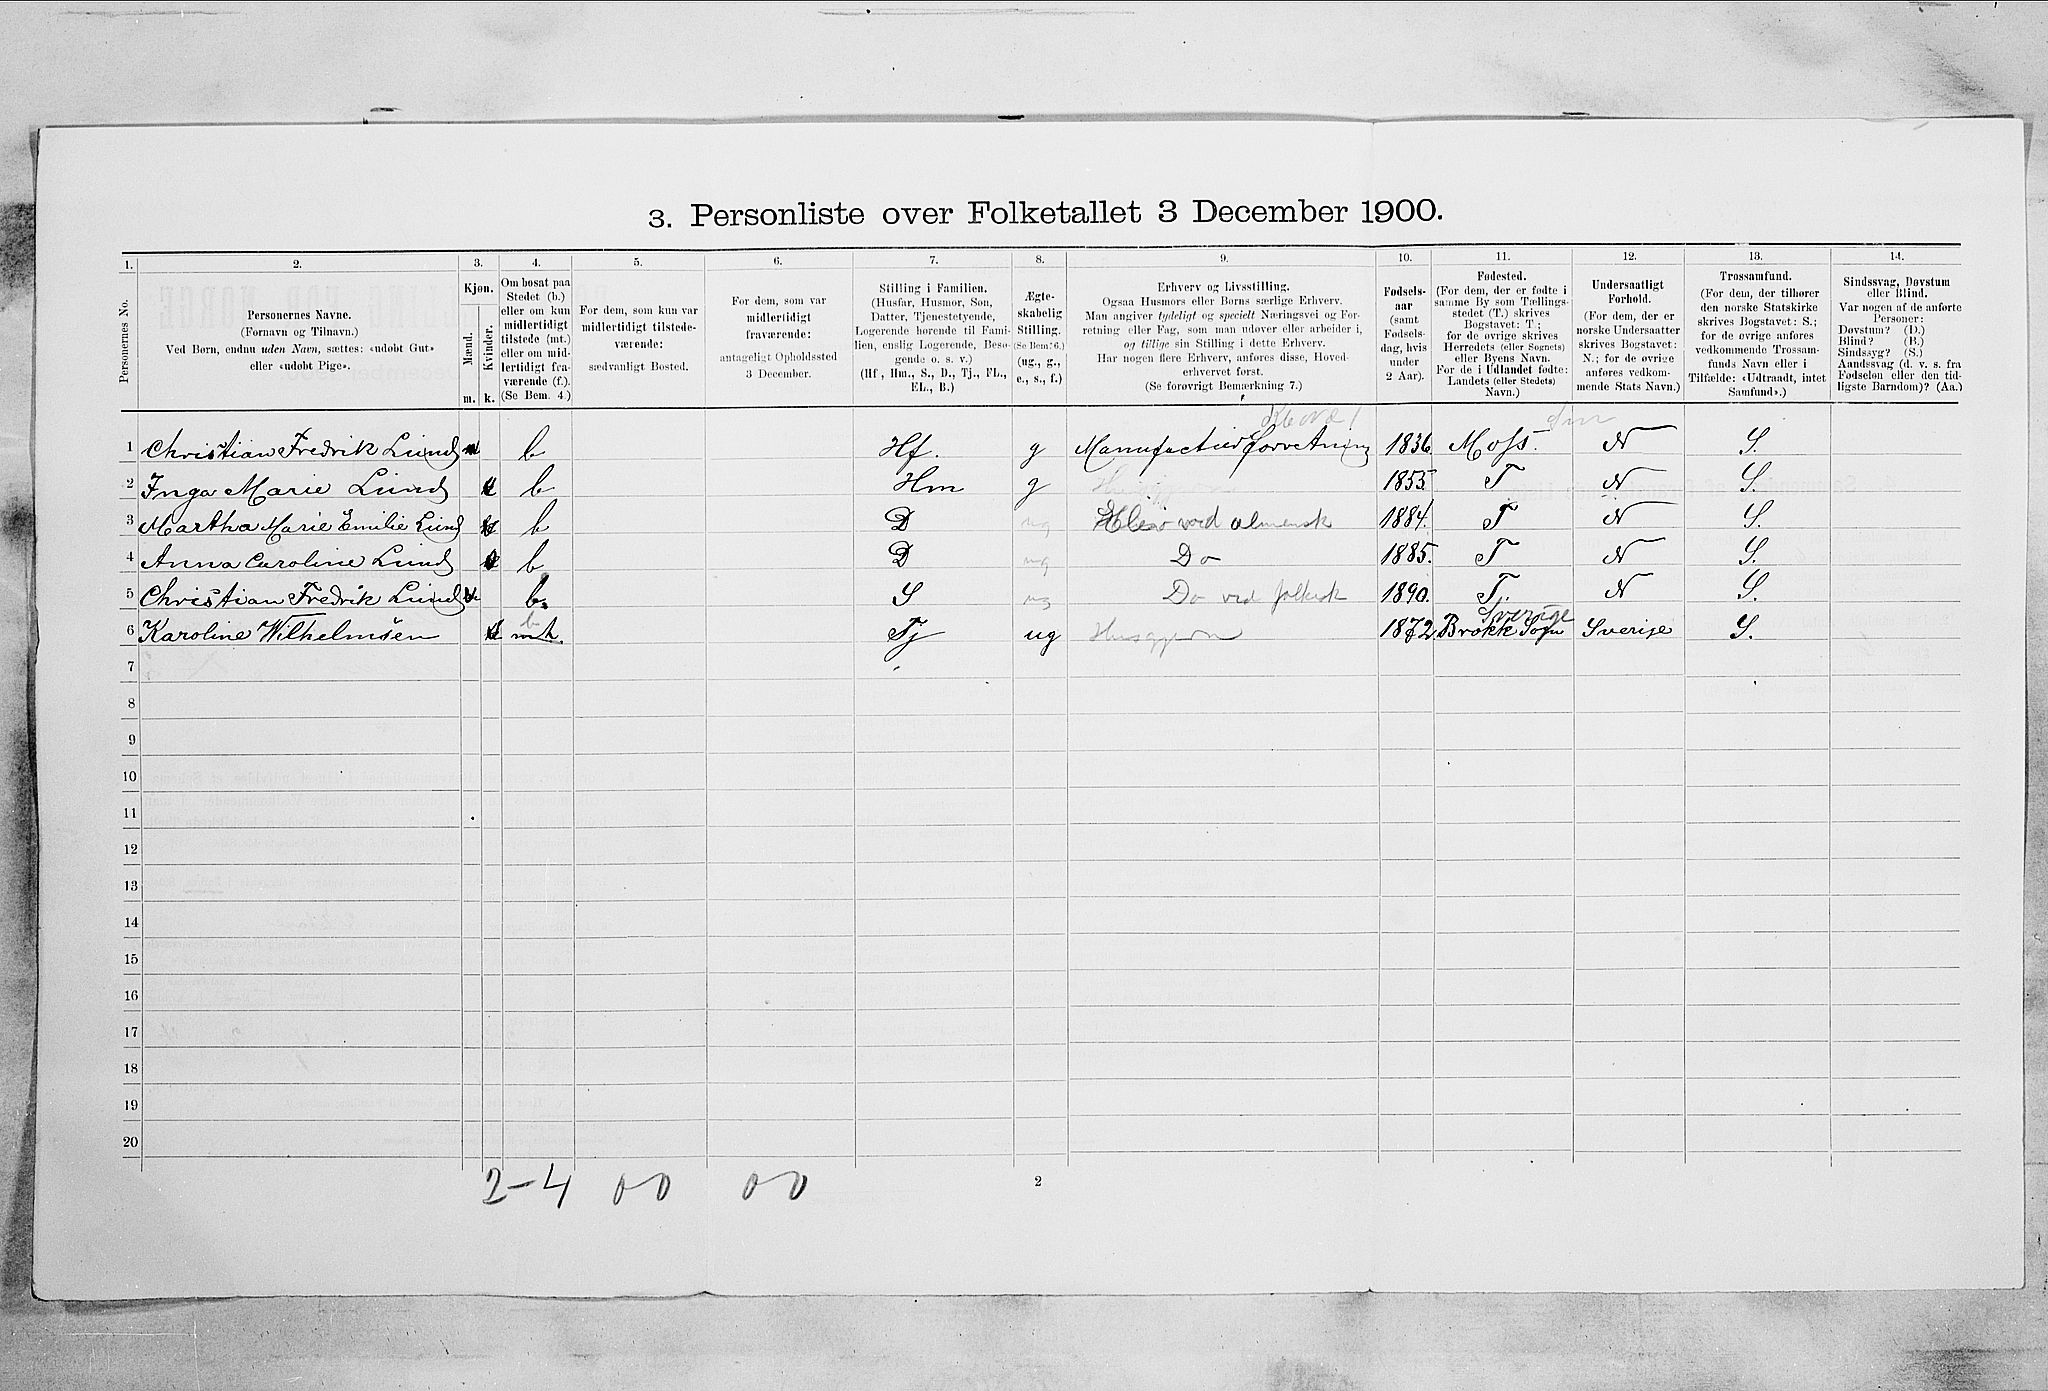 3. Personliste over Folketallet 3 December 1900.
1. 2. 3. 4. 5. 6. 7. 8. 9. 10. 11. 12. 13. 14.
Personernes No.
Personernes Navne.
(Fornavn og Tilnavn.)
Ved Børn, endnu uden Navn, sættes: «udøbt Gut»
eller «udøbt Pige».
Kjøn.
Mænd.
Kvinder.
m. k.
Om bosat paa
Stedet (b.)
eller om kun
midlertidigt
tilstede (mt.)
eller om mid-
lertidigt fra-
værende (f.).
(Se Bem. 4.)
For dem, som kun var
midlertidigt tilstede-
værende:
sædvanligt Bosted.
For dem, som var
midlertidigt
fraværende:
antageligt Opholdssted
3 December.
Stilling i Familien.
(Husfar, Husmor, Søn,
Datter, Tjenestetyende,
Logerende hørende til Fami-
lien, enslig Logerende, Besø-
gende o. s. v.)
(Hf., Hm., S., D., Tj., FL.,
EL., B.)
Ægte-
skabelig
Stilling.
(Se Bem. 6.)
(ug., g.,
e., s., f.)
Erhverv og Livsstilling.
Ogsaa Husmors eller Børns særlige Erhverv.
Man angiver tydeligt og specielt Næringsvei og For-
retning eller Fag, som man udøver eller arbeider i,
og tillige sin Stilling i dette Erhverv.
Har nogen flere Erhverv, anføres disse, Hoved-
erhvervet først.
(Se forøvrigt Bemærkning 7.)
Fødsels-
aar
(samt
Fødsels-
dag, hvis
under
2 Aar).
Fødested.
(For dem, der er fødte i
samme By som Tællings-
stedet (T.) skrives
Bogstavet: T;
for de øvrige skrives
Herredets (eller Sognets)
eller Byens Navn.
For de i Udlandet fødte:
Landets (eller Stedets)
Navn.)
Undersaatligt
Forhold.
(For dem, der er
norske Undersaatter
skrives Bogstavet:
N.; for de øvrige
anføres vedkom-
mende Stats Navn.)
Trossamfund.
(For dem, der tilhører
den norske Statskirke
skrives Bogstavet: S.;
for de øvrige anføres
vedkommende Trossam-
funds Navn eller i
Tilfælde: «Udtraadt, intet
Samfund».)
Sindssvag, Døvstum
eller Blind.
Var nogen af de anførte
Personer:
Døvstum? (D.)
Blind? (B.)
Sindssyg? (S.)
Aandssvag (d. v. s. fra
Fødselen eller den tid-
ligste Barndom)? (Aa.)
1 Christian Fredrik Lund m b Hf. g Manufacturforretning 1836 Moss. N S.
2 Inga Marie Lund b Hm g 1855 T N S.
3 Martha Marie Emilie Lund b D ug Elev ved almensk 1884. T N S.
4 Anna Caroline Lund b D ug Do 1885. T N S.
5 Christian Fredrik Lund b. S ug Do ved folkesk 1890. T. N S.
Sverige
6 Karoline Wilhelmsen b Tj ug Husgjern 1872 Brokk Sogn Sverige S.
7
8
9
10
11
12
13
14
15
16
17
18
19
20
2-4 00 00
2